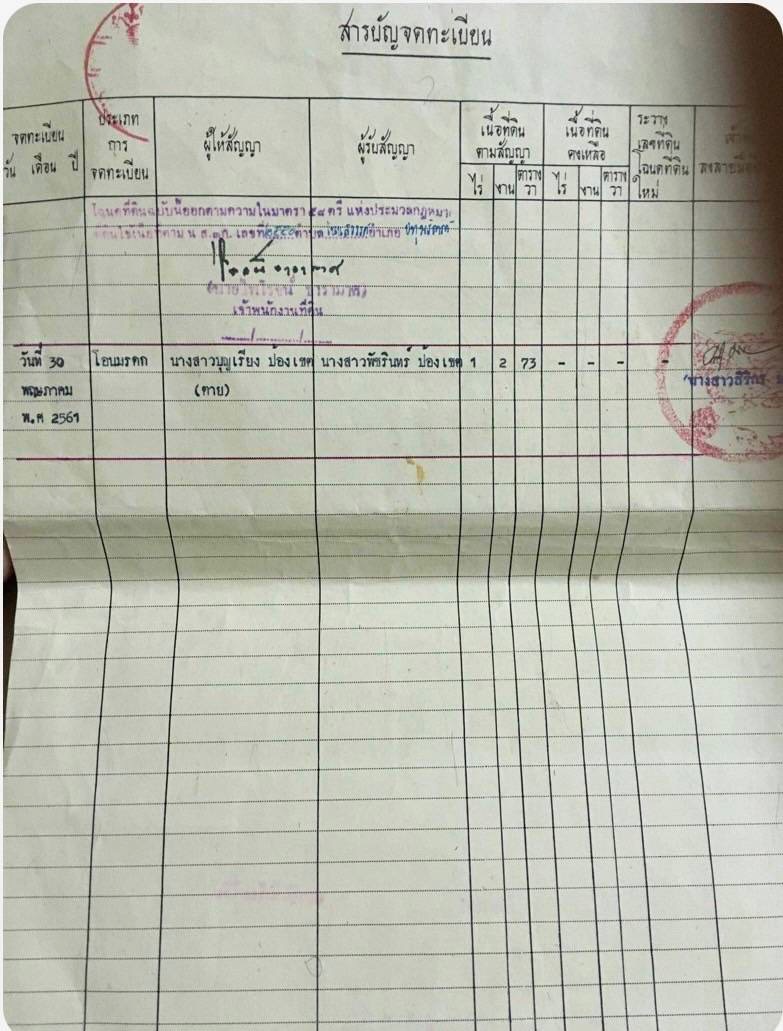 สารบัญจดทะเบียน
จดทะเบียน
วัน เดือน ปี
ประเภท
การ
จดทะเบียน
ผู้ให้สัญญา
ผู้รับสัญญา
เนื้อที่ดิน
ตามสัญญา
ไร่ งาน ตาราง
วา
เนื้อที่ดิน
คงเหลือ
ไร่ งาน ตาราง
วา
ระวาง
เลขที่ดิน
โฉนดที่ดิน
ใหม่
ลงลายมือ
โฉนดที่ดินฉบับนี้ออกตามความในมาตรา ๕๘ ตรี แห่งประมวลกฎหมาย
ที่ดิน น.ส.๓ก. เลขที่ ตำบล อำเภอ
เจ้าพนักงานที่ดิน
วันที่ 30 โอนมรดก นางสาวบุญเรียง ป้องเขต นางสาวพัชรินทร์ ป้องเขต 1 2 73 - - -
พฤษภาคม (ตาย)
พ.ศ 2561
นางสาวสิริกร